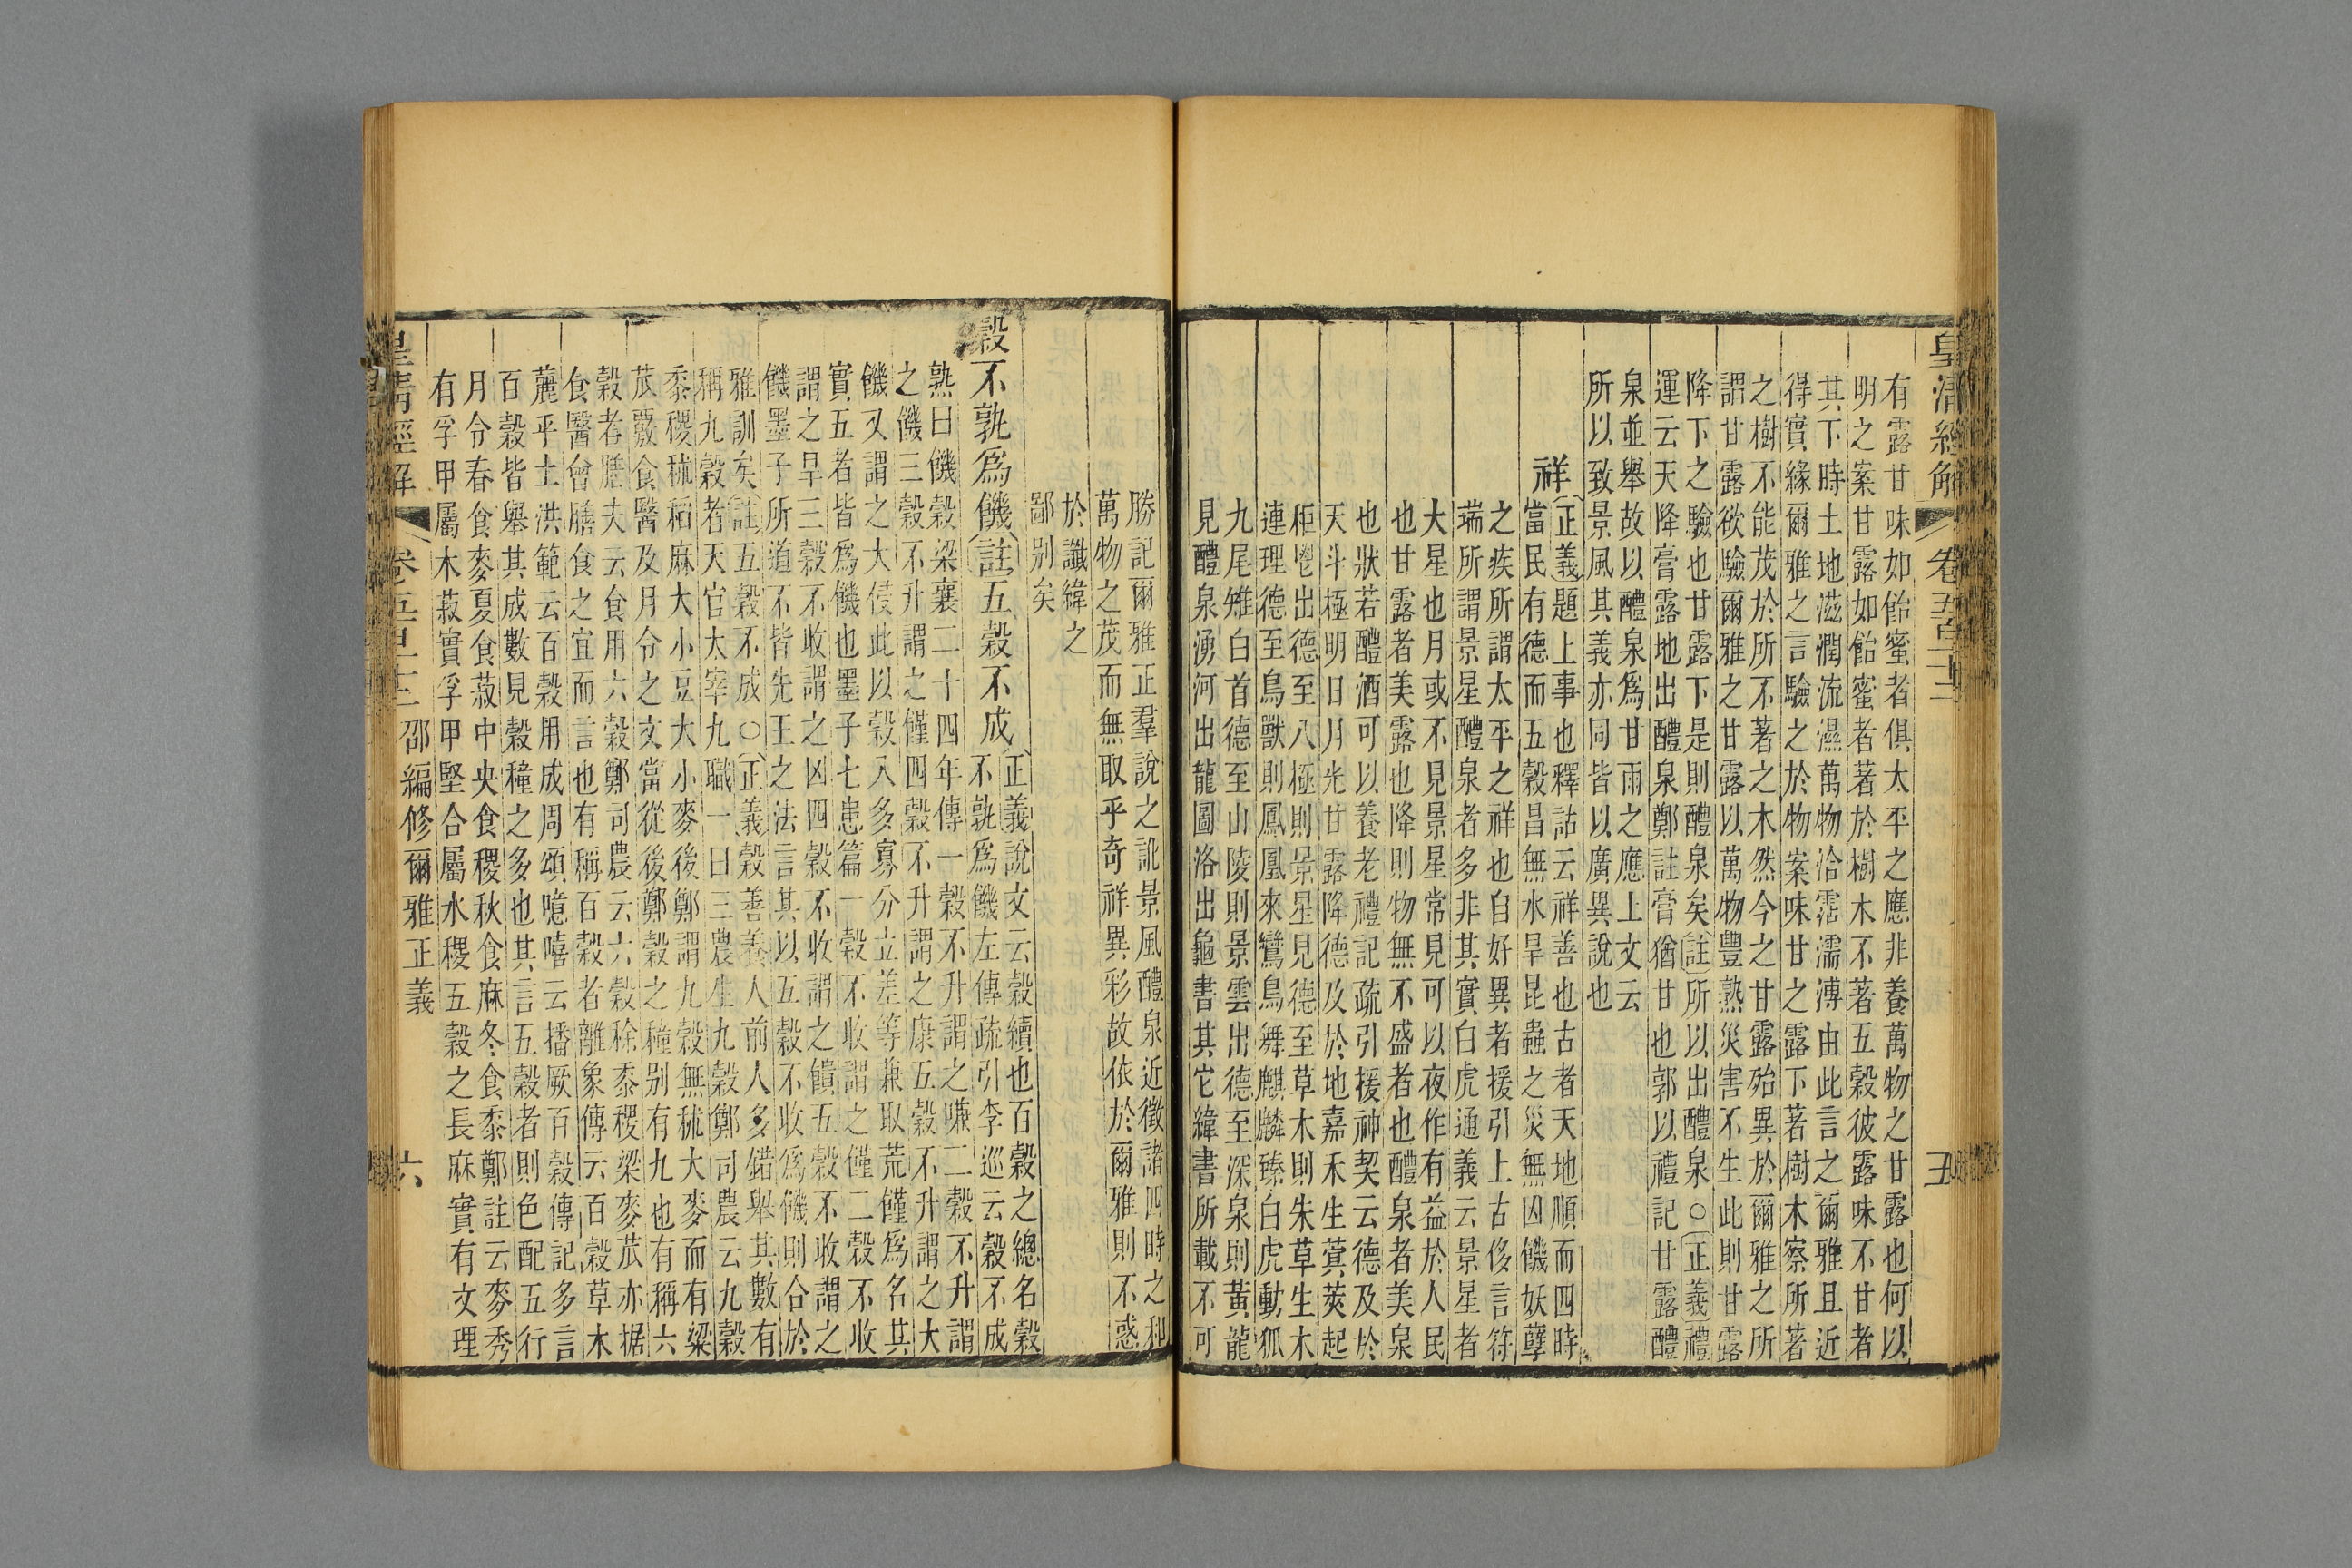 皇清經解 卷五百十二 五
有露甘味如飴蜜者俱太平之應非養萬物之甘露也何以
明之案甘露如飴蜜者著於樹木不著五穀彼露味不甘者
其下時土地滋潤流濕萬物洽霑濡溥由此言之爾雅且近
得實緣爾雅之言驗之於物案味甘之露下著樹木察所著
之樹不能茂於所不著之木然今之甘露殆異於爾雅之所
謂甘露欲驗爾雅之甘露以萬物豐熟災害不生此則甘露
降下之驗也甘露下是則醴泉矣註所以出醴泉○正義禮
運云天降膏露地出醴泉鄭註膏猶甘也郭以禮記甘露醴
泉並舉故以醴泉爲甘雨之應上文云
所以致景風其義亦同皆以廣異說也
祥
正義題上事也釋詁云祥善也古者天地順而四時
當民有德而五穀昌無水旱昆蟲之災無凶饑妖孽
之疾所謂太平之祥也自好異者援引上古侈言符
瑞所謂景星醴泉者多非其實白虎通義云景星者
大星也月或不見景星常見可以夜作有益於人民
也甘露者美露也降則物無不盛者也醴泉者美泉
也狀若醴酒可以養老禮記疏引援神契云德及於
天斗極明日月光甘露降德及於地嘉禾生蓂莢起
秬鬯出德至八極則景星見德至草木則朱草生木
連理德至鳥獸則鳳凰來鸞鳥舞麒麟臻白虎動狐
九尾雉白首德至山陵則景雲出德至深泉則黃龍
見醴泉湧河出龍圖洛出龜書其它緯書所載不可
勝記爾雅正羣說之訛景風醴泉近徵諸四時之利
萬物之茂而無取乎奇祥異彩故依於爾雅則不惑
於讖緯之
鄙别矣
穀不孰爲饑註五穀不成
正義說文云穀續也百穀之總名穀
不孰爲饑左傳疏引李巡云穀不成
熟曰饑穀梁襄二十四年傳一穀不升謂之嗛二穀不升謂
之饑三穀不升謂之饉四穀不升謂之康五穀不升謂之大
饑又謂之大侵此以穀入多寡分立差等兼取荒饉爲名其
實五者皆爲饑也墨子七患篇一穀不收謂之饉二穀不收
謂之旱三穀不收謂之凶四穀不收謂之餽五穀不收謂之
饑墨子所道不皆先王之法言其以五穀不收爲饑則合於
雅訓矣註五穀不成○正義穀善養人前人多錯舉其數有
稱九穀者天官太宰九職一曰三農生九穀鄭司農云九穀
黍稷秫稻麻大小豆大小麥後鄭謂九穀無秫大麥而有粱
苽覈食醫及月令之文當從後鄭穀之種别有九也有稱六
穀者膳夫云食用六穀鄭司農云六穀稌黍稷粱麥苽亦据
食醫會膳食之宜而言也有稱百穀者離象傳云百穀草木
麗乎土洪範云百穀用成周頌噫嘻云播厥百穀傳記多言
百穀皆舉其成數見穀種之多也其言五穀者則色配五行
月令春食麥夏食菽中央食稷秋食麻冬食黍鄭註云麥秀
有孚甲屬木菽實孚甲堅合屬水稷五穀之長麻實有文理
皇清經解 卷五百十二 邵編修爾雅正義 六